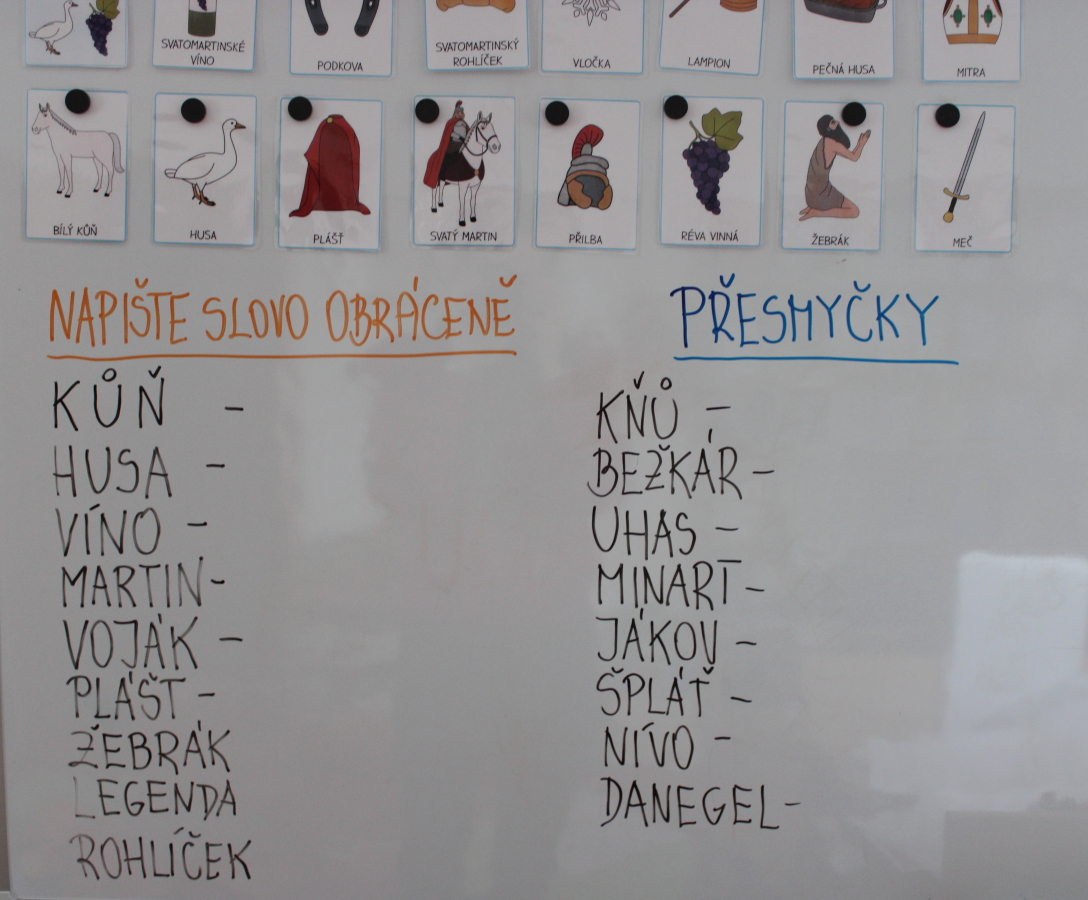 SVATOMARTINSKÉ
VÍNO
PODKOVA
SVATOMARTINSKÝ
ROHLÍČEK
VLOČKA
LAMPION
PEČNÁ HUSA
MITRA
BÍLÝ KŮŇ
HUSA
PLÁŠŤ
SVATÝ MARTIN
PŘILBA
RÉVA VINNÁ
ŽEBRÁK
MEČ
NAPIŠTE SLOVO OBRÁCENĚ
KŮŇ -
HUSA -
VÍNO -
MARTIN -
VOJÁK -
PLÁŠT -
ŽEBRÁK
LEGENDA
ROHLÍČEK
PŘESMYČKY
KŇŮ -
BEŽKÁR -
UHAS -
MINART -
JÁKOV -
ŠPLÁŤ -
NÍVO -
DANEGEL -